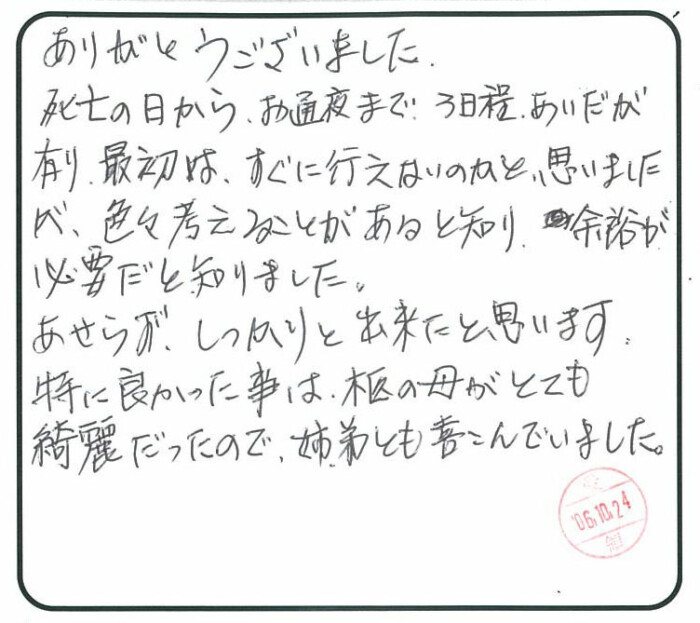 ありがとうございました.
死亡の日から、お通夜まで、3日程、あいだが
有り、最初は、すぐに行えないのかと、思いました
が、色々考えることがあると知り、余裕が
必要だと知りました。
あせらず、しっかりと出来たと、思います.
特に良かった事は、柩の母がとても
綺麗だったので、姉弟とも喜こんでいました。
'06.10.24